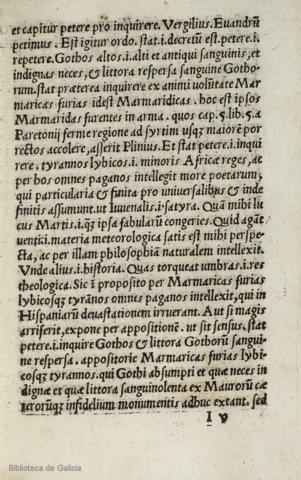 et capitur petere pro inquirere. Vergilius. Euandrũ
petimus. Est igitur ordo. stat.i.decretũ est. petere.i.
repetere. Gothos altos.i.alti et antiqui sanguinis, et
indignas neces, & littora respersa sanguine Gotho-
rum. stat præterea inquirere ex animi volũtate Mar
maricas furias idest Marmaridicas. hoc est ipsos
Marmaridas furentes in arma. quos cap.5.lib.5.a
Paretonij ferme regione ad syrtim usqz maiorẽ por
rectos accolere, asserit Plinius. Et stat petere.i.inqui
rere. tyrannos lybicos.i. minoris Africæ reges, at
per hos omnes paganos intellegit more poetarum,
qui particularia & finita pro uniuersalibus & inde
finitis assumunt. ut Iuuenalis.i.satyra. Quã mihi lu
cus Martis.i.qz ipsa fabularũ congeries. Quid agãt
uenti.i.materia meteorologica satis est mihi perspe-
cta, ac per illam philosophiã naturalem intellexit.
Vnde alius.i.historia. Quas torqueat umbras.i.res
theologica. Sic ĩ proposito per Marmaricas furias
lybicosqz tyrãnos omnes paganos intellexit, qui in
Hispaniarũ deuastationem irruerant. Aut si magis
arriserit, expone per appositionẽ. ut sit sensus. stat
petere.i.inquire Gothos & littora Gothorũ sangui-
ne respersa. appositorie Marmaricas furias lybi-
cosqz tyrannos. qui Gothi absumpti et quæ neces in
dignæ et quæ littora sanguinolenta ex Maurorũ cæ
terorũqz infidelium monumentis adhuc extant. sed
I v
Biblioteca de Galicia